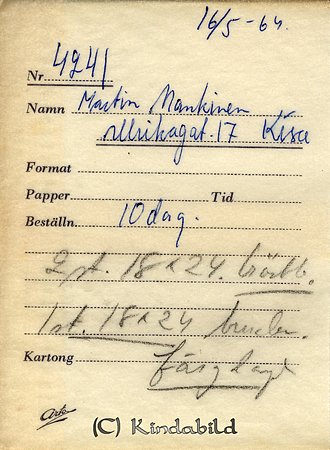 16/5 - 64.
Nr 4241
Namn Martin Mankinen
Ulrikagat. 17 Kisa
Format
Papper Tid
Beställn 10 dag.
2 st. 18 x 24.
1 st. 18 x 24 bruden.
Kartong färglagt
Ark
(C) Kindabild